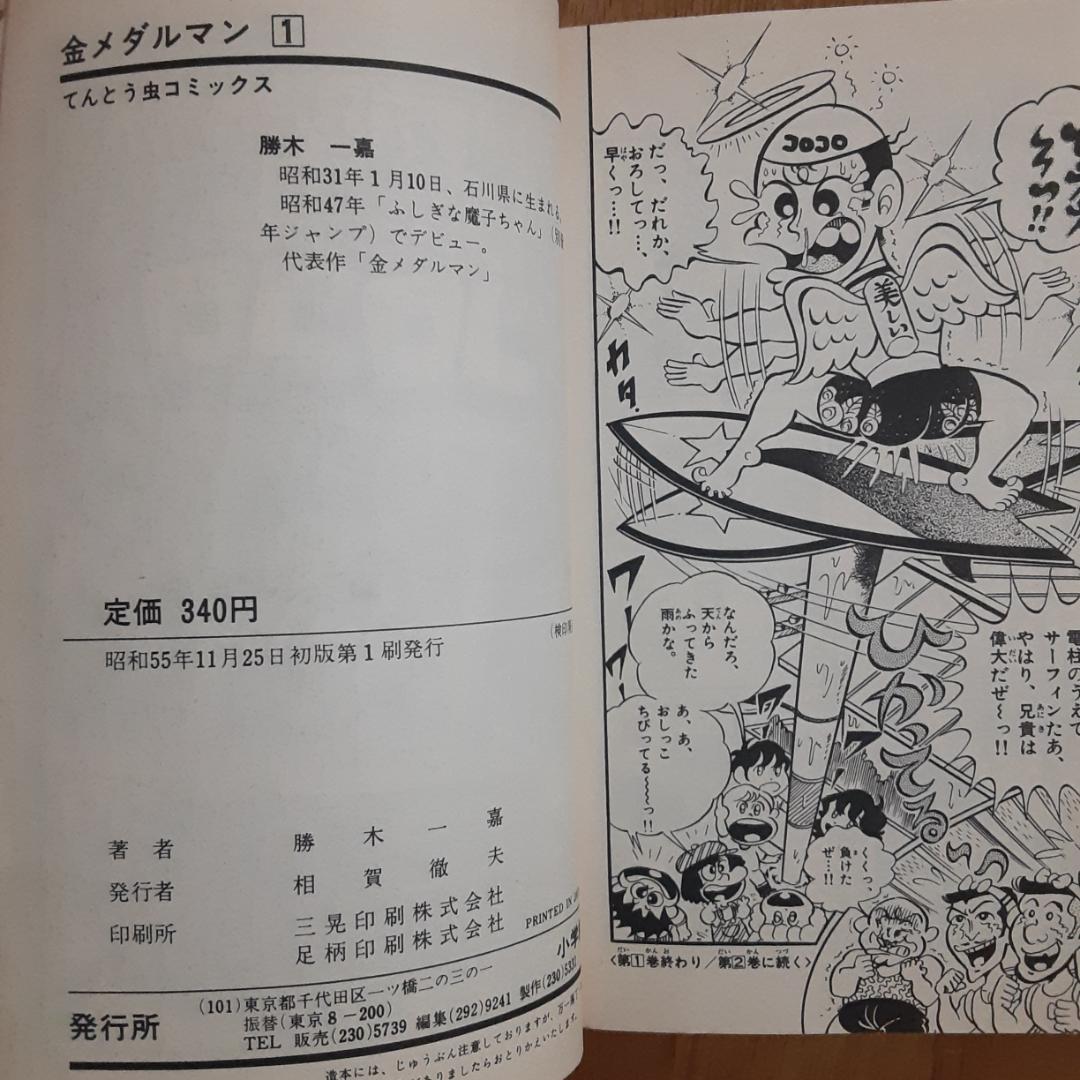 金メダルマン 1
てんとう虫コミックス
勝木 一嘉
昭和31年1月10日、石川県に生まれる。
昭和47年「ふしぎな魔子ちゃん」(別冊
年ジャンプ)でデビュー。
代表作「金メダルマン」
定価 340円
(検印
昭和55年11月25日初版第1刷発行
著者 勝木一嘉
発行者 相賀徹夫
印刷所 三晃印刷株式会社
足柄印刷株式会社
PRINTED IN
小学
(101)東京都千代田区一ツ橋二の三の一
振替(東京8-200)
発行所
TEL 販売(230)5739 編集(292)9241 製作(230)533
造本には、じゅうぶん注意しておりますが、万一
がありましたらおとりかえいたします。
JOJO
だっ、だれか、
おろしてっ…、
早くっ…!!
美しい
カタ
電柱のうえで
サーフィンたあ、
やはり、兄貴は
偉大だぜ〜っ!!
なんだろ、
天から
ふってきた
雨かな。
あ、あ、
おしっこ
ちびってる〜〜〜っ!!
ワーワー
くくっ、
負けた
ぜ…!!
〈第1巻終わり/第2巻に続く〉